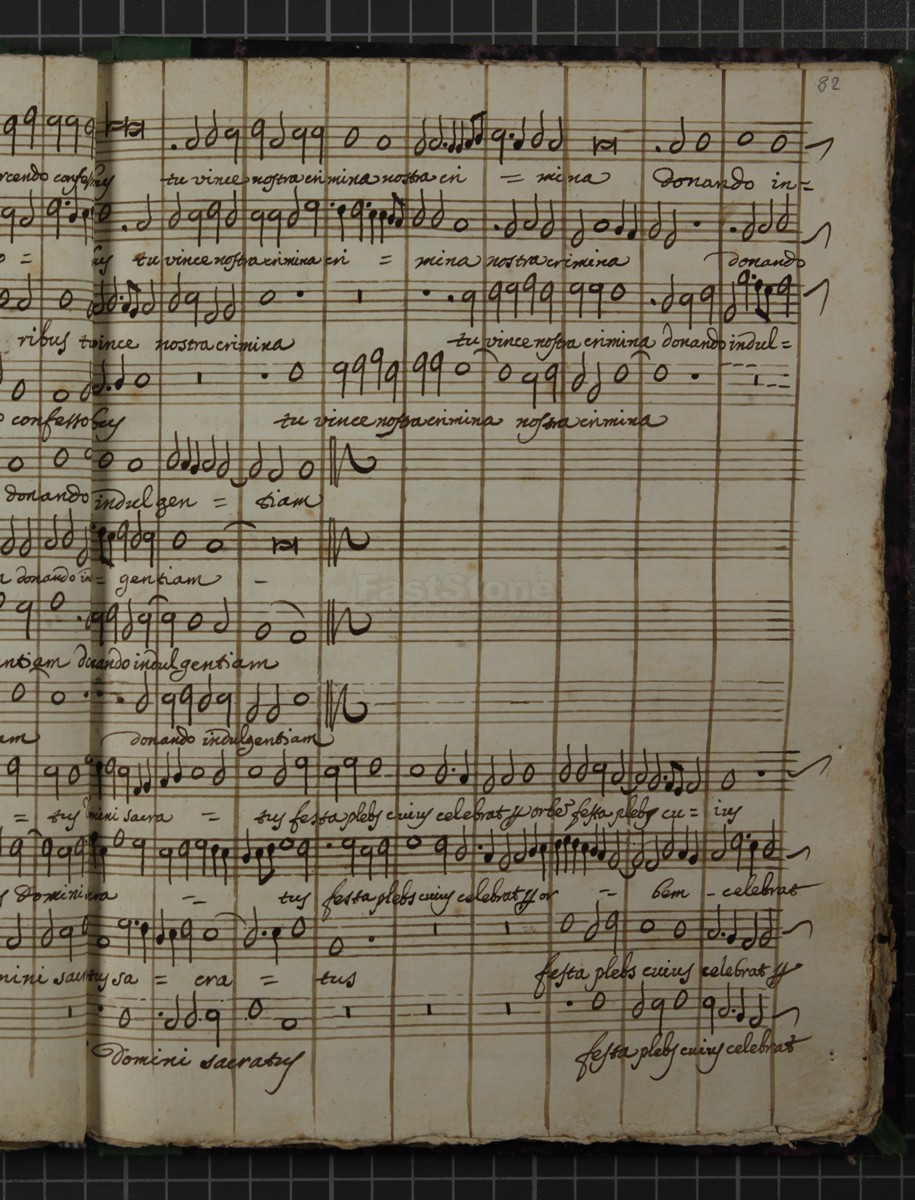 82
tu vince nostra crimina nostra cri = mina donando in=
tu vince nostra crimina cri = mina nostra crimina donando
ribus nostra crimina tu vince nostra crimina donando indul=
tu vince nostra crimina nostra crimina
donando indulgen = tiam
donando in= gentiam -
FastStone
donando indulgentiam
donando indulgentiam
= tus sacra = tus festa plebs cuius celebrat festa plebs cu= ius
tus festa plebs cuius celebrat or = bem - celebrat
sa = cra = tus festa plebs cuius celebrat
domini sacratus festa plebs cuius celebrat